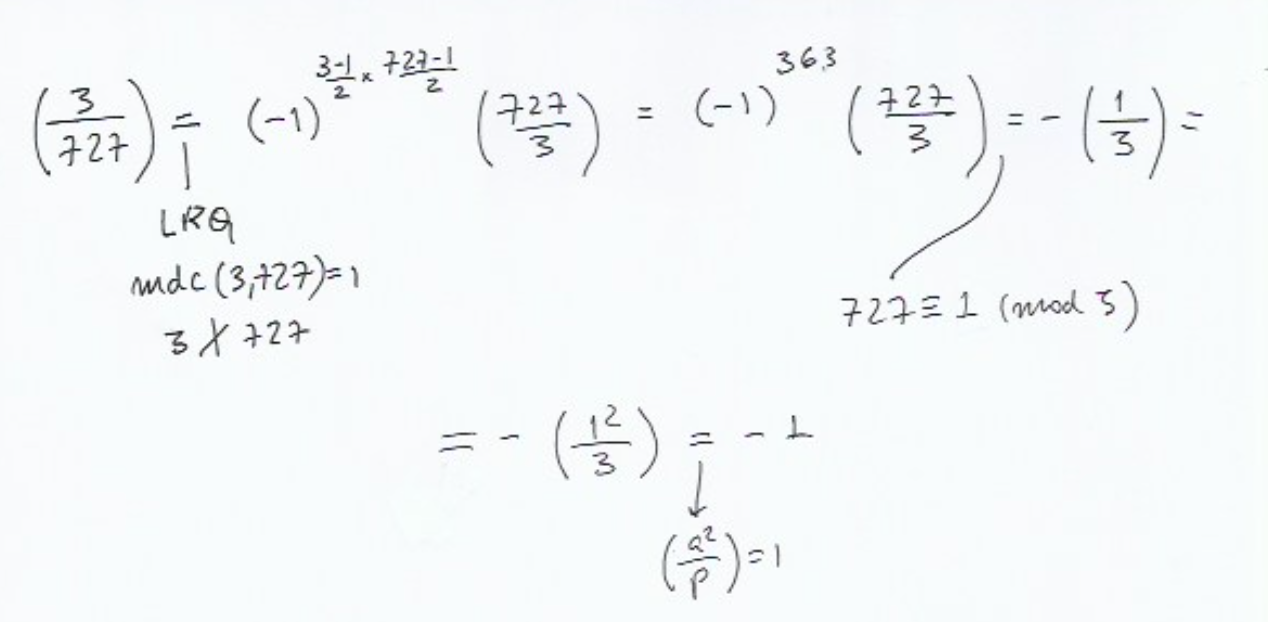 (3/727) = (-1)^(3-1/2 × 727-1/2) (727/3) = (-1)^363 (727/3) = - (1/3) =
LRQ
mdc(3,727)=1
3 ∤ 727
727 ≡ 1 (mod 3)
= - (1²/3) = - 1
(a²/p) = 1